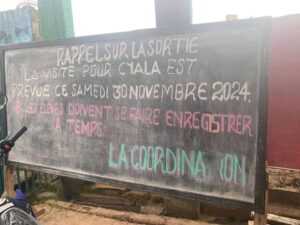 RAPPEL SUR LA SORTIE
LA VISITE POUR CYALA EST
PREVUE CE SAMEDI 30 NOVEMBRE 2024.
LES ELEVES DOIVENT SE FAIRE ENREGISTRER
A TEMPS
LA COORDINA ION